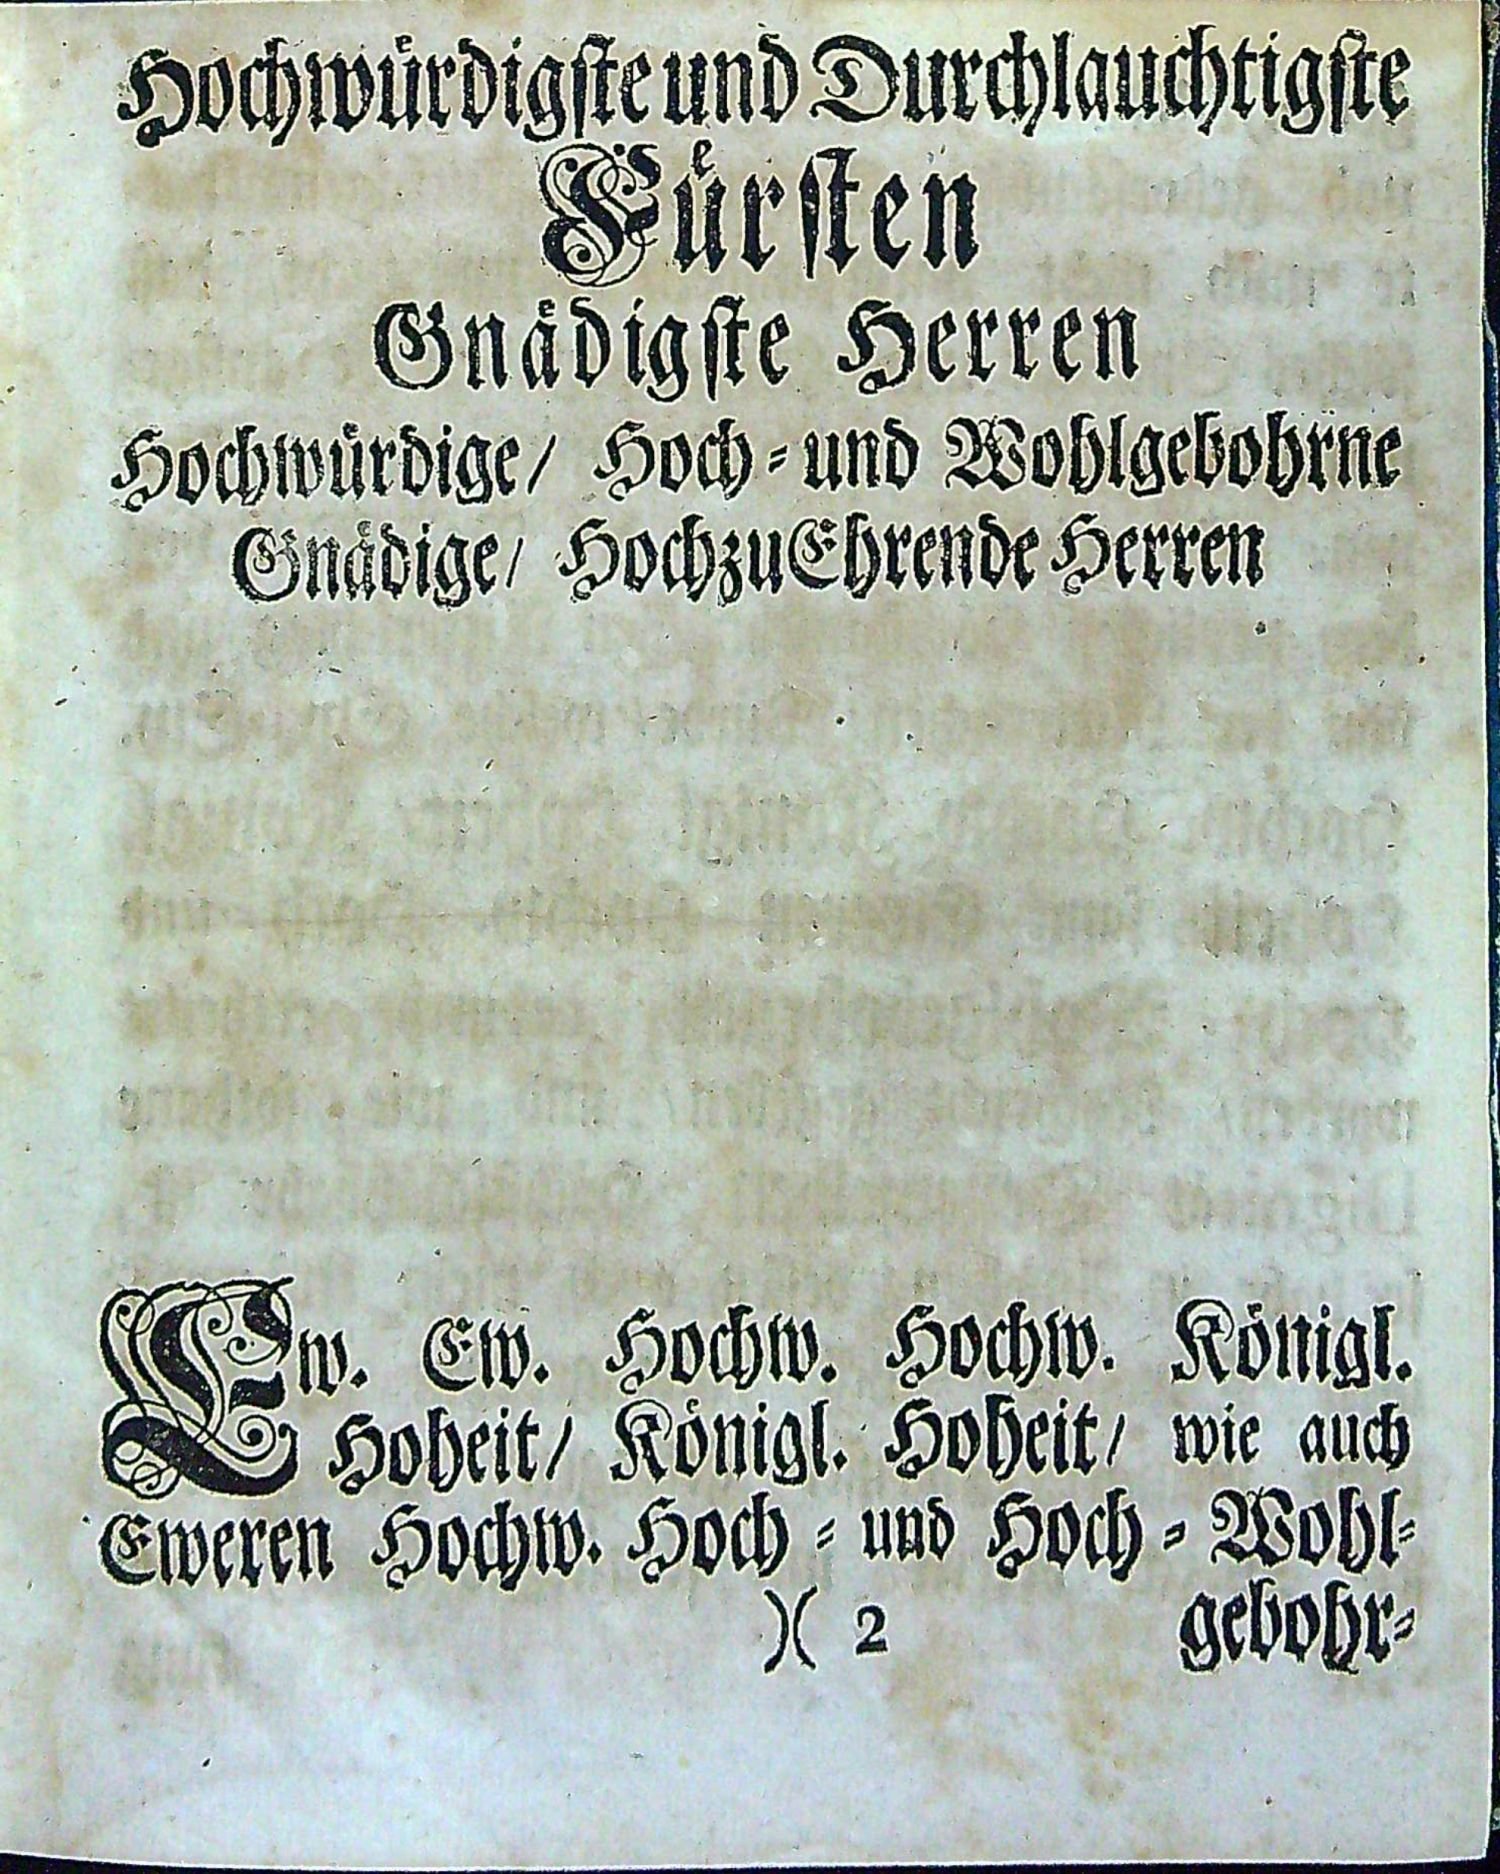 Hochwuͤrdigſte und Durchlauchtigſte
Fuͤrſten
Gnaͤdigſte Herren
Hochwuͤrdige/ Hoch- und Wohlgebohrne
Gnaͤdige/ HochzuEhrende Herren
Ew. Ew. Hochw. Hochw. Koͤnigl.
Hoheit/ Koͤnigl. Hoheit/ wie auch
Eweren Hochw. Hoch- und Hoch-Wohl-
)( 2 gebohr-